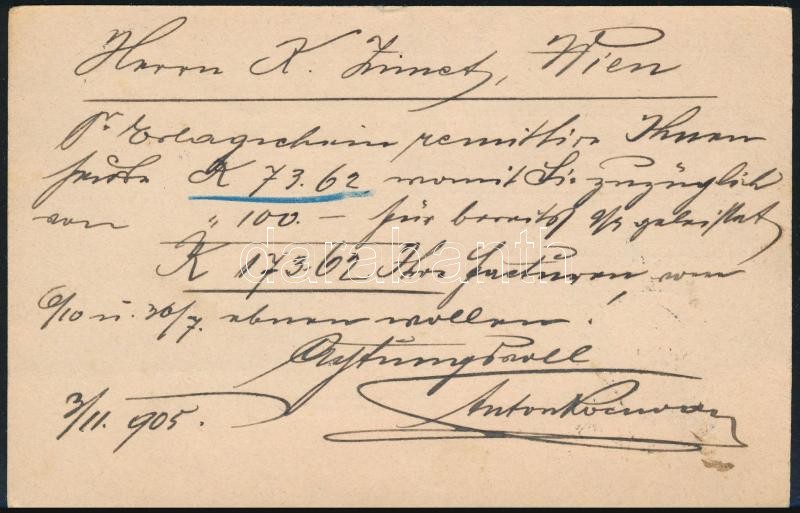 Herrn K. Zimet, Wien
pr. Erlagschein remittire Ihnen
heute K 73.62 womit Sie zuzüglich
von " 100.— für bereits geleistet
K 173.62 Ihre Facturen vom
6/10 u. 30/7. ebnen wollen!
Achtungsvoll
3/11. 905. Anton
darabanth